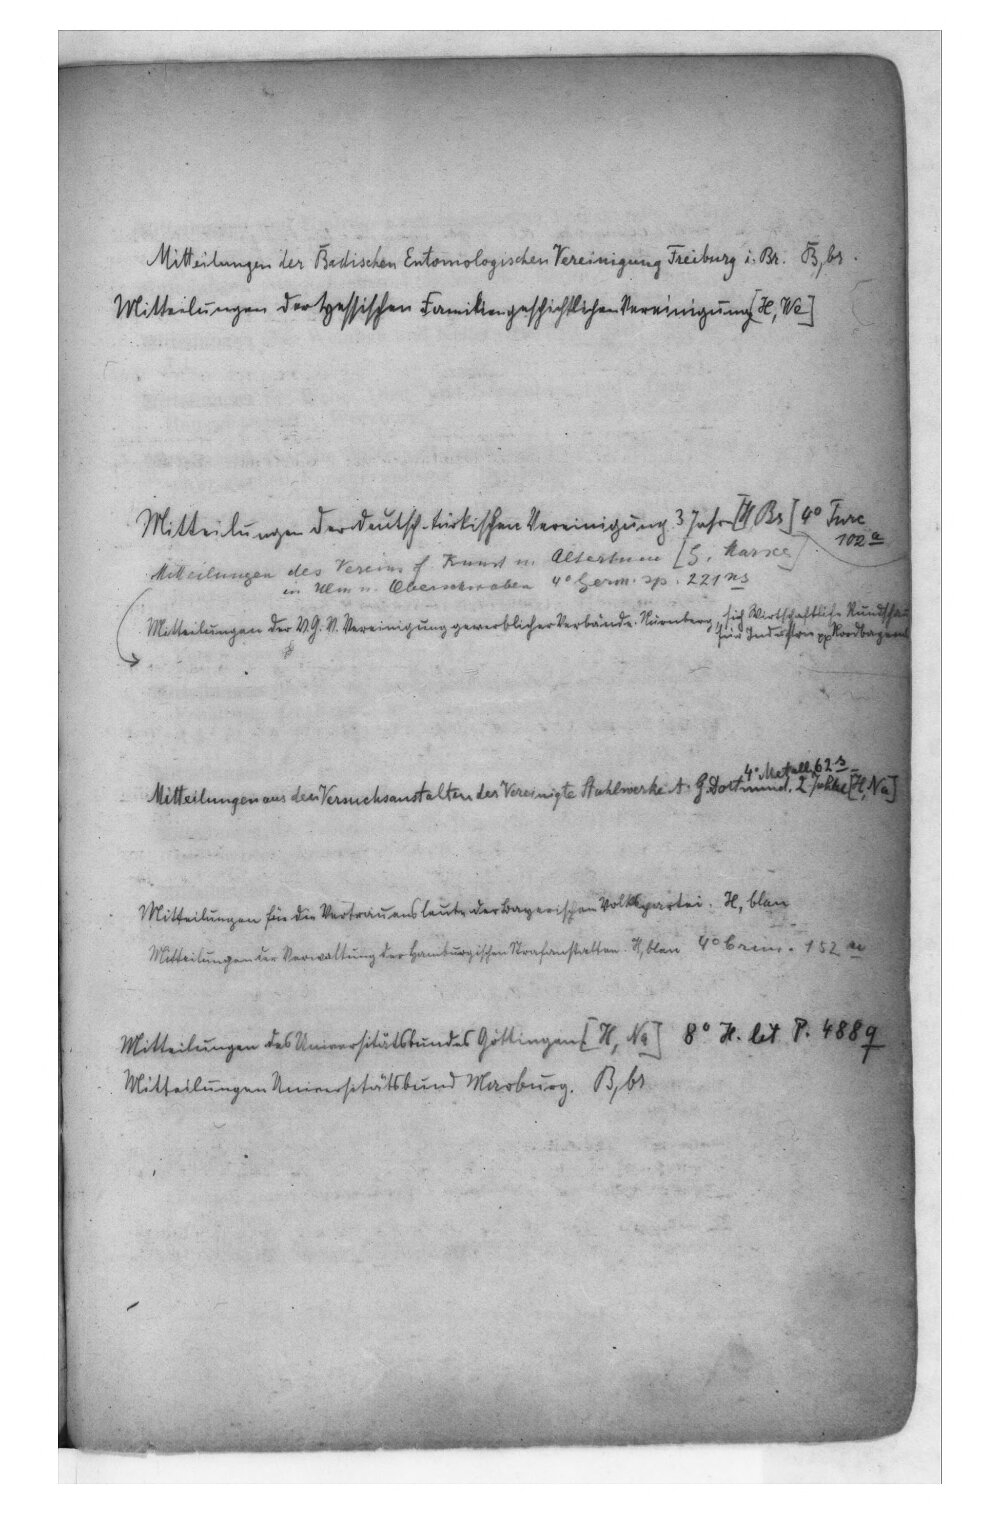 Mitteilungen der Badischen Entomologischen Vereinigung Freiburg i. Br. B, br.
Mitteilungen der Hessischen Familiengeschichtlichen Vereinigung [H, We]
Mitteilungen der deutsch-türkischen Vereinigung 3 Jahre [H Br] 4° Turc
102 a
Mitteilungen des Vereins f. Kunst u. Altertum
in Ulm u. Oberschwaben 4° Germ. sp. 221 ns
Mitteilungen der V.G.V. Vereinigung gewerblicher Verbände. Nürnberg, sieh Wirtschaftliche Rundschau
für Industrie Nordbayerns
4° Metall. 62 s
Mitteilungen aus den Versuchsanstalten der Vereinigte Stahlwerke A. G. Dortmund. 2 Jahre [H, Na]
Mitteilungen für die Vertrauensleute der Bayerischen Volkspartei. H, blau
Mitteilungen der Verwaltung der Hamburgischen Strafanstalten. H, blau 4° Crim. 152
Mitteilungen des Universitätsbundes Göttingen [H, Na] 8° H. lit P. 488 q
Mitteilungen Universitätsbund Marburg. B, br